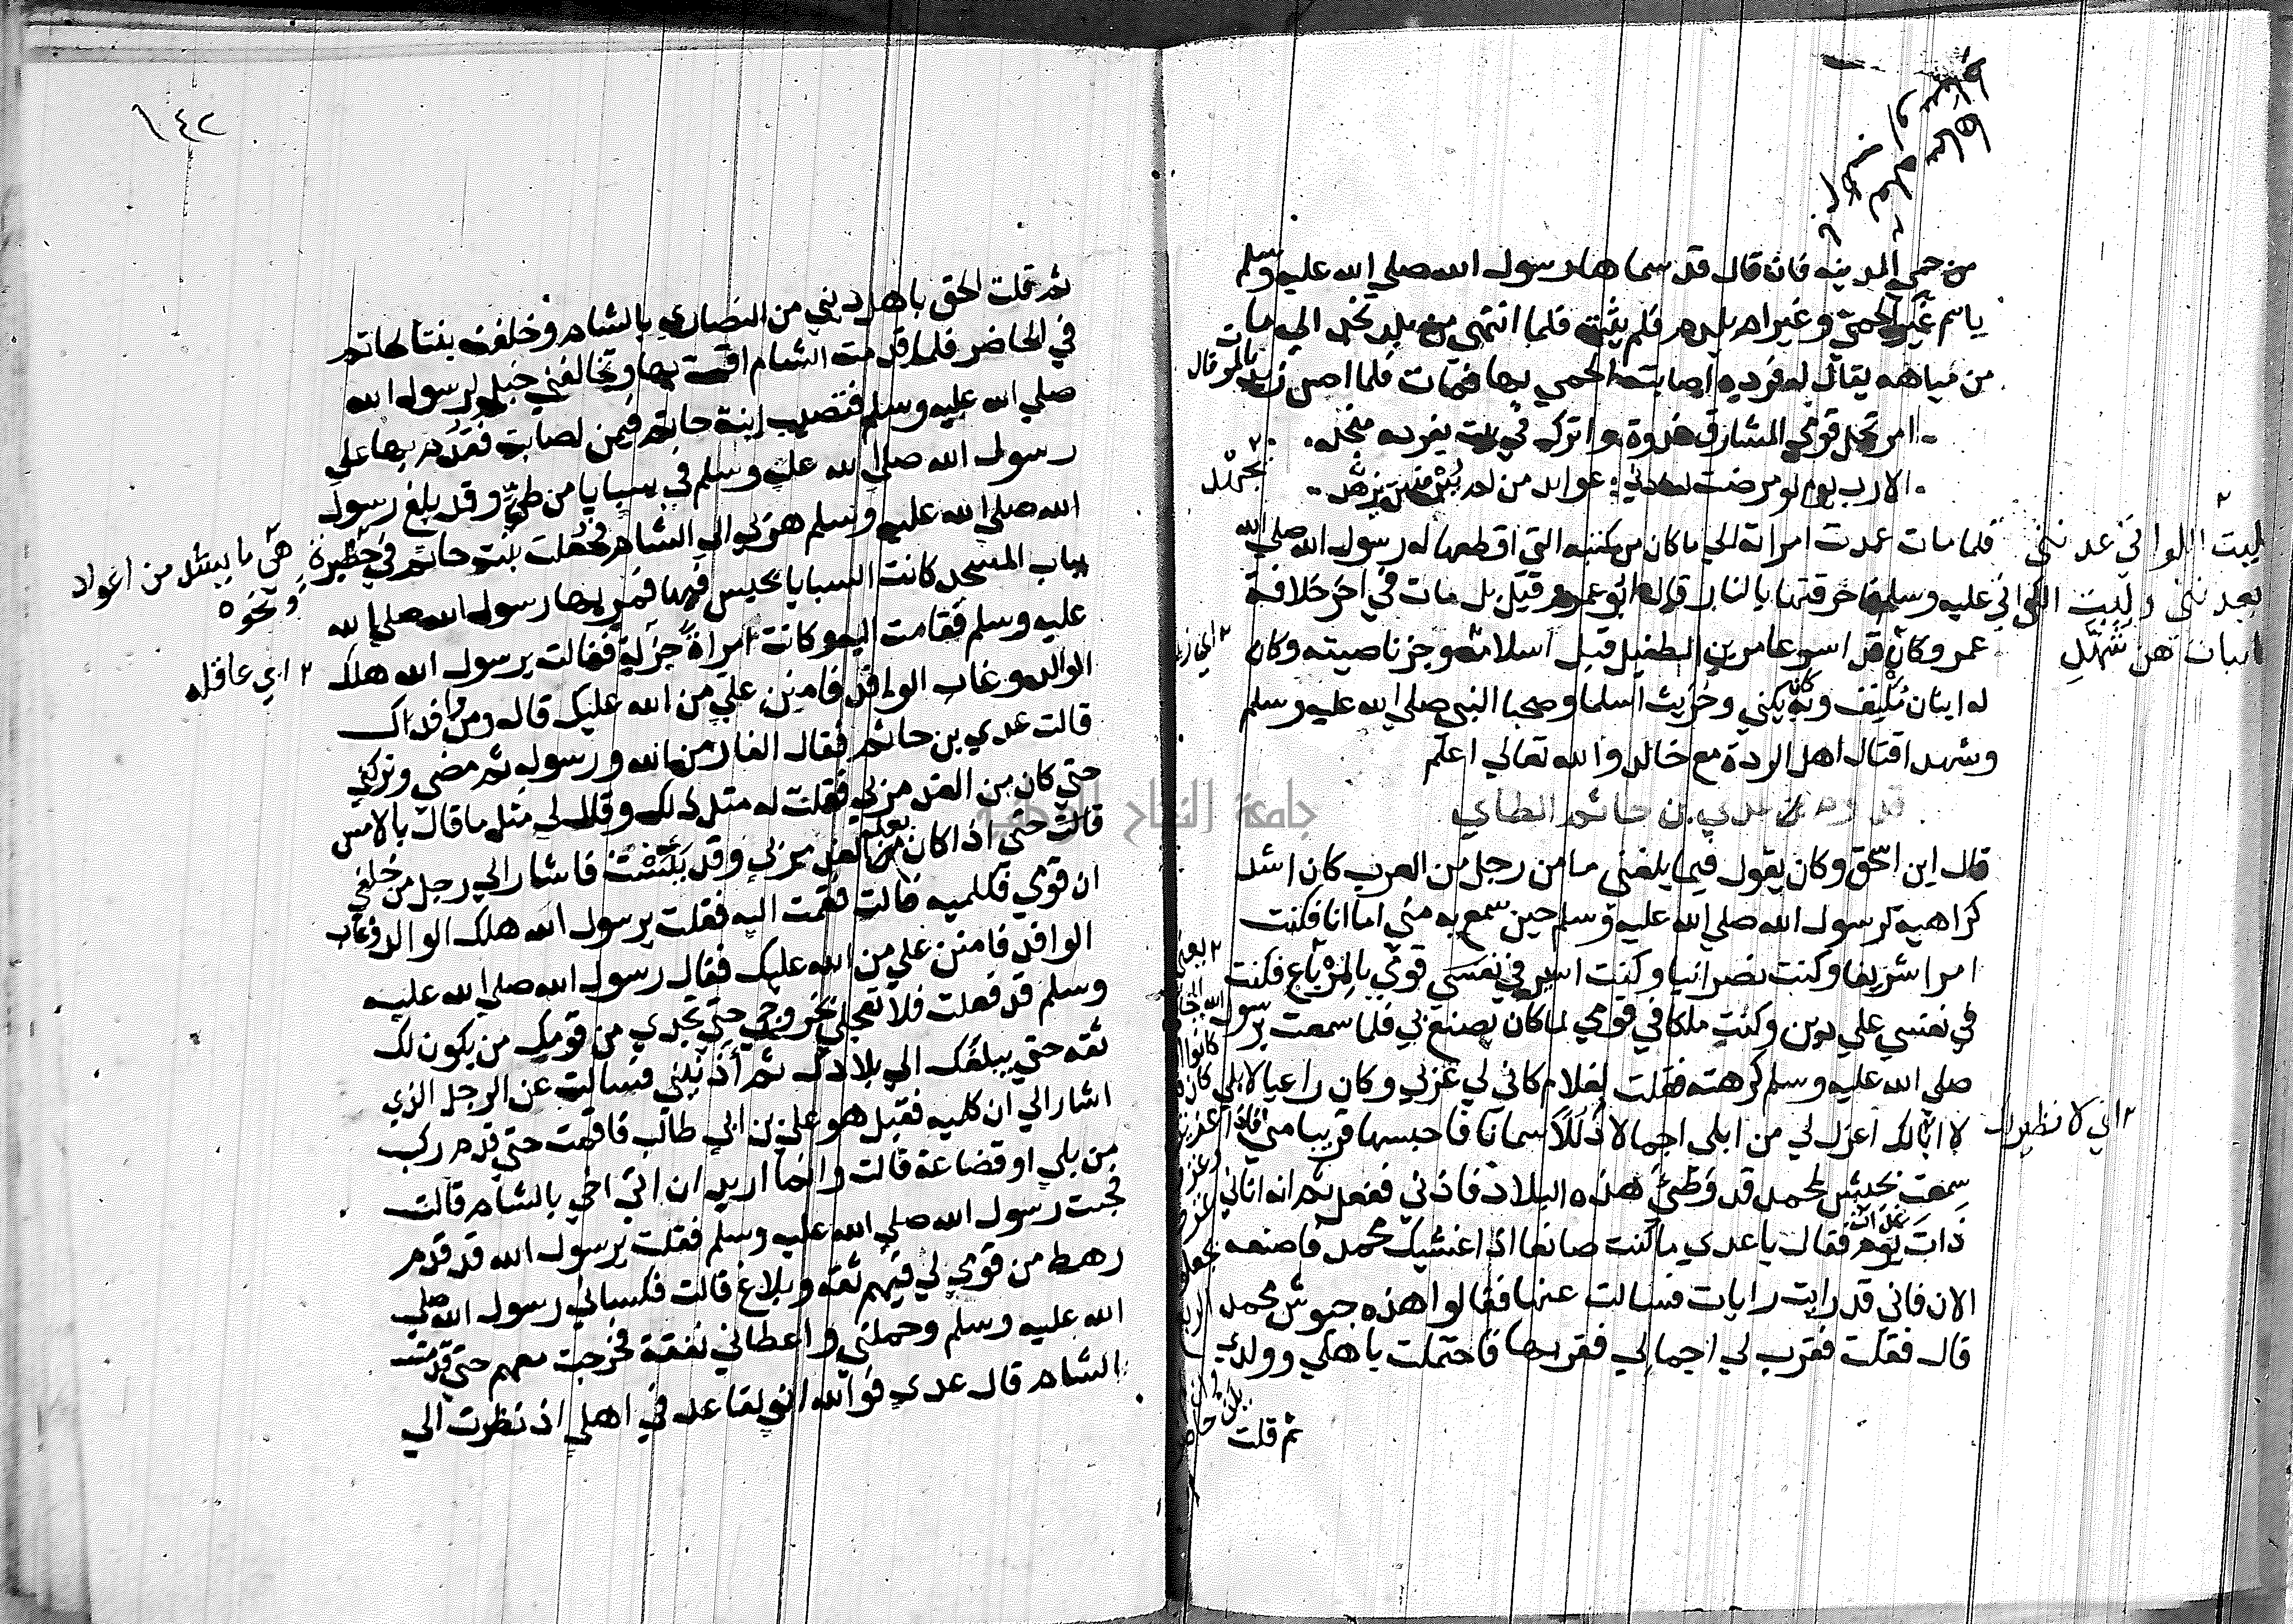 من حمي المدينه فانه قال قد سماها رسول الله صلي الله عليه وسلم
باسم غير الحمي وغير ام ملدم فلم يثبته فلما انتهي من بلد نجد الي ما
من مياهه يقال له فرده اصابته الحمي بها فمات فلما احس زيد بالموت قال
امرتحل قومي المشارق غدوة واترك في بيت بفرده منجد
الا رب يوم لو مرضت لعادني عوايد من لم يبر منهن يجهد
فلما مات عمدت امراته الي ما كان من كتبه التي اقطعها له رسول الله صلي الله
عليه وسلم فاحرقتها بالنار قال ابو عمر وقيل بل مات في اخر خلافة
عمر وكان قد اسر عامر بن الطفيل قبل اسلامه وجز ناصيته وكان
له ابنان مكنف وبه يكني وحريث اسلما وصحبا النبي صلي الله عليه وسلم
وشهدا قتال اهل الردة مع خالد والله تعالي اعلم
قدوم عدي بن حاتم الطاي
قال ابن اسحق وكان يقول فيما بلغني ما من رجل من العرب كان اشد
كراهية لرسول الله صلي الله عليه وسلم حين سمع به مني اما انا فكنت
امرا شريفا وكنت نصرانيا وكنت اسير في نفسي قومي بالمرباع فكنت
في نفسي علي دين وكنت ملكا في قومي لما كان يصنع بي فلما سمعت برسول الله
صلي الله عليه وسلم كرهته فقلت لغلام كان لي عربي وكان راعيا لابلي
لا ابالك اعزل لي من ابلي اجمالا ذللا سمانا فاحبسها قريبا مني فاذا
سمعت بجيش لمحمد قد وطئ هذه البلاد فاذني ففعل ثم انه اتاني
ذات يوم فقال يا عدي ما كنت صانعا اذا غشيتك محمد فاصنعه
الان فاني قد رايت رايات فسالت عنها فقالوا هذه جيوش محمد
قال فقلت فقرب لي اجمالي فقربها فاحتملت باهلي وولدي
ثم قلت
لييت اللواتي عدنني
يعدنني وليت اللواتي
شهد
يجهد
اي لا نظير لك
١٤٢
ثم قلت الحق باهل ديني من النصاري بالشام وخلفت بنتا لحاتم
في الحاضر فلما قدمت الشام اقمت بها وتخالفني خيل لرسول الله
صلي الله عليه وسلم فتصيب ابنة حاتم فيمن اصابت فقدم بها علي
رسول الله صلي الله عليه وسلم في سبايا من طي وقد بلغ رسول
الله صلي الله عليه وسلم هربي الي الشام فجعلت بنت حاتم في حظيرة
بباب المسجد كانت السبايا يحبس فيها فمر بها رسول الله صلي الله
عليه وسلم فقامت اليه وكانت امراة جزلة فقالت يرسول الله هلك
الوالد وغاب الوافد فامنن علي من الله عليك قال ومن وافداك
قالت عدي بن حاتم فقال الفار من الله ورسوله ثم مضي وتركني
حتي كان من الغد مر بي فقلت له مثل ذلك وقال لي مثل ما قال بالامس
قالت حتي اذا كان بعد الغد مر بي وقد يئست فاشار الي رجل من خلفي
ان قومي فكلميه قالت فقمت اليه فقلت يرسول الله هلك الوالد وغاب
الوافد فامنن علي من الله عليك فقال رسول الله صلي الله عليه
وسلم قد فعلت فلا تعجلي بخروجي حتي تجدي من قومك من يكون لك
ثقه حتي يبلغك الي بلادك ثم اذنيني فسالت عن الرجل الذي
اشار الي ان كلميه فقيل هو علي بن ابي طالب فاقمت حتي قدم ركب
من بلي او قضاعة قالت وانما اريد ان اتي اخي بالشام قالت
فجيت رسول الله صلي الله عليه وسلم فقلت يرسول الله قد قدم
رهط من قومي لي فيهم ثقه وبلاغ قالت فكساني رسول الله صلي
الله عليه وسلم وحملني واعطاني نفقة فخرجت معهم حتي قدمت
الشام قال عدي فوالله اني لقاعد في اهلي اذ نظرت الي
هي ما يبنل من اعواد
ونحوه
اي عاقله
جامعة النجاح الوطنية